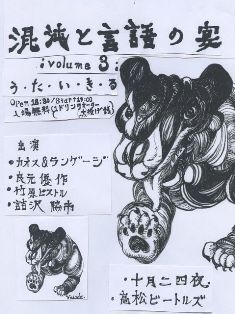 混沌と言語の宴
:volume 3:
う・た・い・き・る
open 18:30/start 19:00
入場無料(1ドリンクオーダー
出演
・カオス&ランゲージ
・良元優作
・竹原ピストル
・詰沢
・十月二四夜
・高松ビートルズ